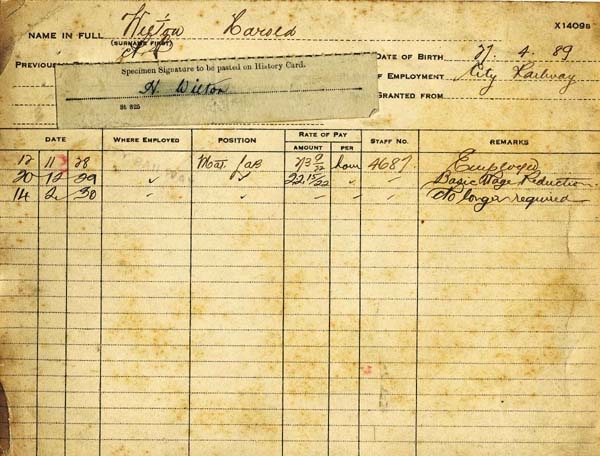 X1409B
NAME IN FULL Wilton Harold
(SURNAME FIRST)
PREVIOUS
DATE OF BIRTH 27 4. 89
Specimen Signature to be pasted on History Card.
OF EMPLOYMENT City Railway
H. Wilton
GRANTED FROM
St 825
DATE WHERE EMPLOYED POSITION RATE OF PAY STAFF NO. REMARKS
AMOUNT PER
12 11 28 Mat. Lab hour 4687 Employed
20 12 29 " " " " Basic Wage Reduction
14 2 30 " " " " " No longer required